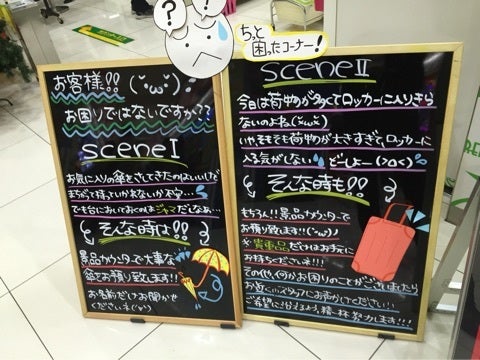 ？ ？
ちょっと
困ったコーナー！
お客様!! (˘ω˘)
お困りではないですか??
scene I
お気に入りの傘をさしてきたのはいいが
まちがって持っていかれないか不安…
でも台においておくのはジャマだしなぁ…
そんな時は!!
景品カウンターで大事な
傘をお預り致します!!
お名前だけお聞かせ
くださいネ(˘v˘)
scene II
今日は荷物が多くてロッカーに入りきら
ないのよね(˘ω˘)
いや、そもそも荷物が大きすぎてロッカーに
入る気がしない どーしよー(>o<)
そんな時も!!
もちろん!!景品カウンターで
お預り致します!!(˘ω˘)
※貴重品だけはお手元に
お持ちくださいネ!!!
その他、何かお困りのことがございましたら
お近くのスタッフにお声かけください!!
ご希望に沿えるよう、精一杯努力します!!!